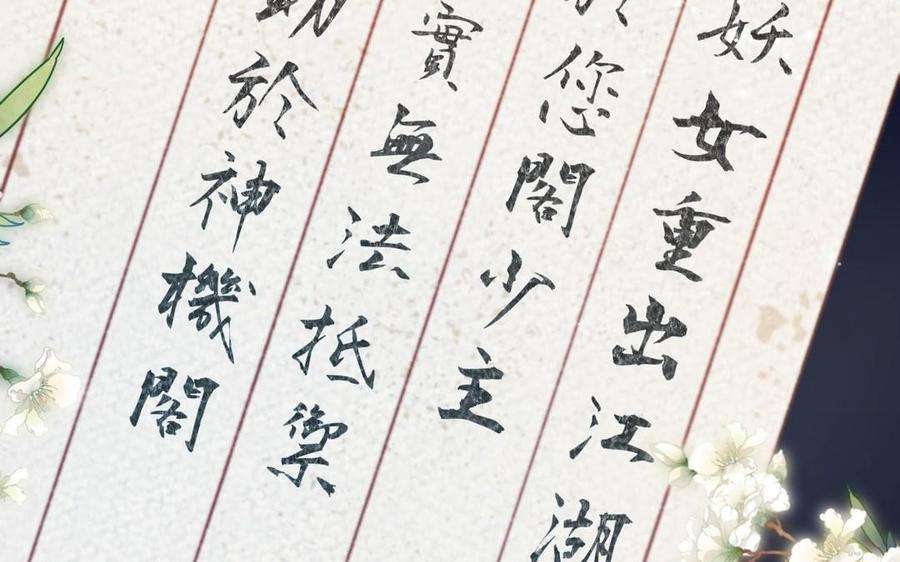 妖女重出江湖
於您閣少主
實無法抵禦
助於神機閣